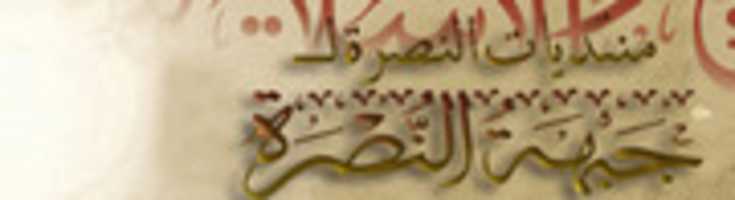 منتديات النصرة لـ
جَبْهَةُ النُّصْرَة